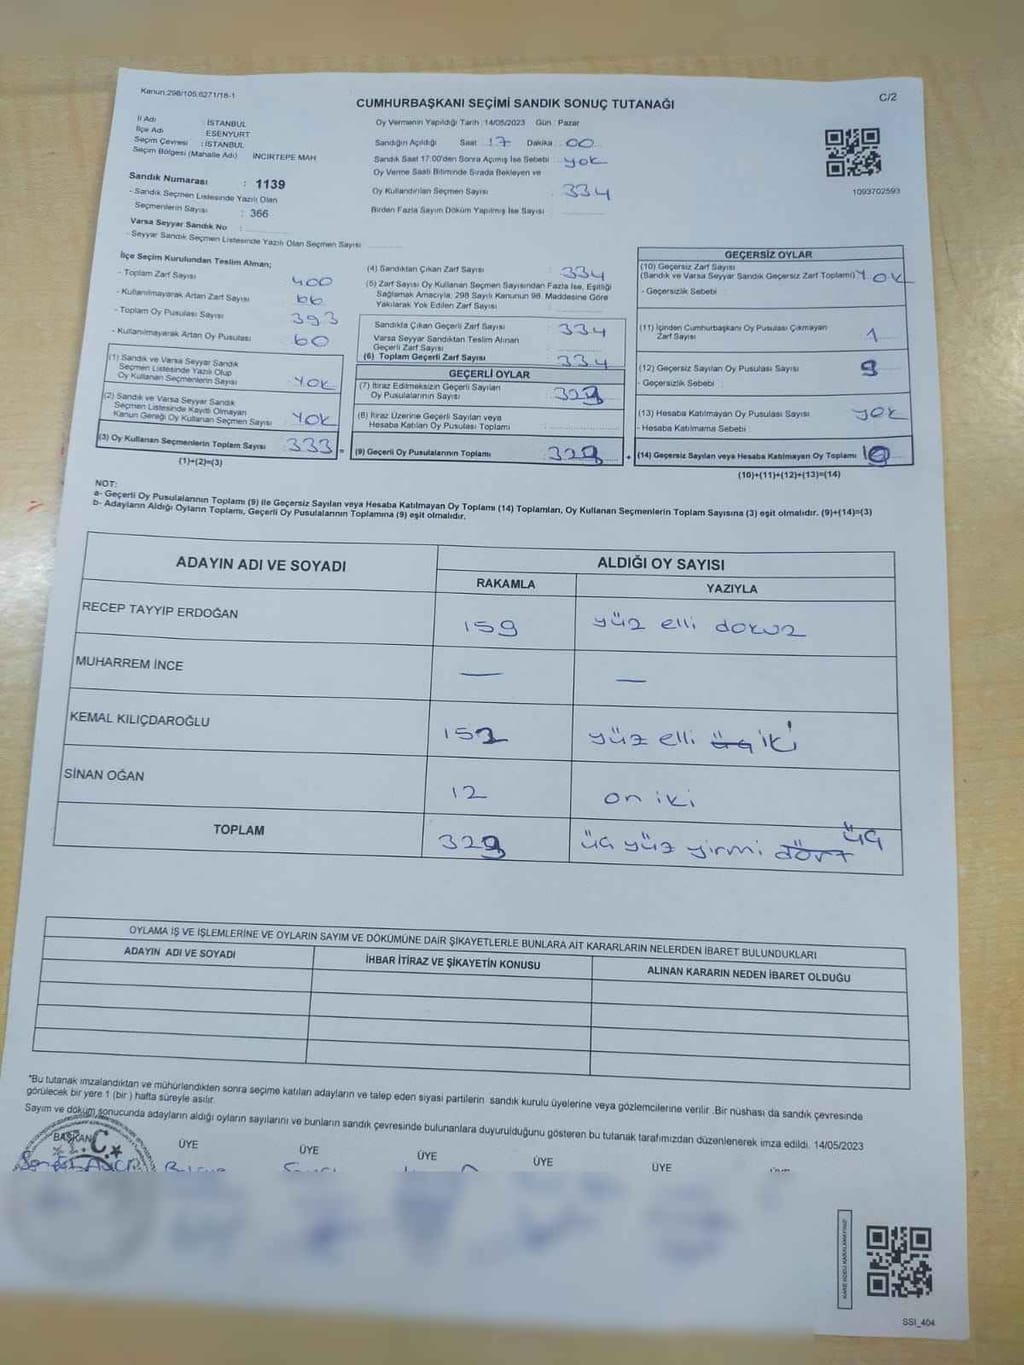 Kanun:298/105,6271/18-1
C/2
CUMHURBAŞKANI SEÇİMİ SANDIK SONUÇ TUTANAĞI
İl Adı : İSTANBUL
İlçe Adı ESENYURT
Seçim Çevresi : İSTANBUL
Seçim Bölgesi (Mahalle Adı) İNCİRTEPE MAH
Sandık Numarası : 1139
- Sandık Seçmen Listesinde Yazılı Olan
Seçmenlerin Sayısı : 366
Varsa Seyyar Sandık No :
- Seyyar Sandık Seçmen Listesinde Yazılı Olan Seçmen Sayısı
Oy Vermenin Yapıldığı Tarih :14/05/2023 Gün : Pazar
Sandığın Açıldığı Saat : 17 Dakika 00
Sandık Saat 17:00'den Sonra Açımış İse Sebebi yok
Oy Verme Saati Bitiminde Sırada Bekleyen ve
Oy Kullandırılan Seçmen Sayısı 334
Birden Fazla Sayım Döküm Yapılmış İse Sayısı
1093702593
İlçe Seçim Kurulundan Teslim Alınan;
- Toplam Zarf Sayısı 400
- Kullanılmayarak Artan Zarf Sayısı 66
- Toplam Oy Pusulası Sayısı 393
- Kullanılmayarak Artan Oy Pusulası 60
(1) Sandık ve Varsa Seyyar Sandık
Seçmen Listesinde Yazılı Olup
Oy Kullanan Seçmenlerin Sayısı YOK
(2) Sandık ve Varsa Seyyar Sandık
Seçmen Listesinde Kayıtlı Olmayan
Kanun Gereği Oy Kullanan Seçmen Sayısı YOK
(3) Oy Kullanan Seçmenlerin Toplam Sayısı 333
(1)+(2)=(3)
(4) Sandıktan Çıkan Zarf Sayısı : 334
(5) Zarf Sayısı Oy Kullanan Seçmen Sayısından Fazla İse, Eşitliği
Sağlamak Amacıyla, 298 Sayılı Kanunun 98. Maddesine Göre
Yakılarak Yok Edilen Zarf Sayısı
Sandıkta Çıkan Geçerli Zarf Sayısı : 334
Varsa Seyyar Sandıktan Teslim Alınan
Geçerli Zarf Sayısı
(6) Toplam Geçerli Zarf Sayısı 334
GEÇERLİ OYLAR
(7) İtiraz Edilmeksizin Geçerli Sayılan
Oy Pusulalarının Sayısı 323
(8) İtiraz Üzerine Geçerli Sayılan veya
Hesaba Katılan Oy Pusulası Toplamı
= (9) Geçerli Oy Pusulalarının Toplamı 323 +
GEÇERSİZ OYLAR
(10) Geçersiz Zarf Sayısı
(Sandık ve Varsa Seyyar Sandık Geçersiz Zarf Toplamı) YOK
- Geçersizlik Sebebi
(11) İçinden Cumhurbaşkanı Oy Pusulası Çıkmayan
Zarf Sayısı 1
(12) Geçersiz Sayılan Oy Pusulası Sayısı 9
- Geçersizlik Sebebi
(13) Hesaba Katılmayan Oy Pusulası Sayısı yok
- Hesaba Katılmama Sebebi
(14) Geçersiz Sayılan veya Hesaba Katılmayan Oy Toplamı 10
(10)+(11)+(12)+(13)=(14)
NOT:
a- Geçerli Oy Pusulalarının Toplamı (9) ile Geçersiz Sayılan veya Hesaba Katılmayan Oy Toplamı (14) Toplamları, Oy Kullanan Seçmenlerin Toplam Sayısına (3) eşit olmalıdır. (9)+(14)=(3)
b- Adayların Aldığı Oyların Toplamı, Geçerli Oy Pusulalarının Toplamına (9) eşit olmalıdır.
ADAYIN ADI VE SOYADI ALDIĞI OY SAYISI
RAKAMLA YAZIYLA
RECEP TAYYİP ERDOĞAN 159 yüz elli dokuz
MUHARREM İNCE — —
KEMAL KILIÇDAROĞLU 152 yüz elli üç iki
SİNAN OĞAN 12 on iki
TOPLAM 323 üç yüz yirmi dört üç
OYLAMA İŞ VE İŞLEMLERİNE VE OYLARIN SAYIM VE DÖKÜMÜNE DAİR ŞİKAYETLERLE BUNLARA AİT KARARLARIN NELERDEN İBARET BULUNDUKLARI
ADAYIN ADI VE SOYADI İHBAR İTİRAZ VE ŞİKAYETİN KONUSU ALINAN KARARIN NEDEN İBARET OLDUĞU
"Bu tutanak imzalandıktan ve mühürlendikten sonra seçime katılan adayların ve talep eden siyasi partilerin sandık kurulu üyelerine veya gözlemcilerine verilir .Bir nüshası da sandık çevresinde
görülecek bir yere 1 (bir ) hafta süreyle asılır.
Sayım ve döküm sonucunda adayların aldığı oyların sayılarını ve bunların sandık çevresinde bulunanlara duyurulduğunu gösteren bu tutanak tarafımızdan düzenlenerek imza edildi. 14/05/2023
BAŞKAN ÜYE ÜYE ÜYE ÜYE ÜYE
T.C.
KARE KODU KARALAMAYINIZ!
SSI_404